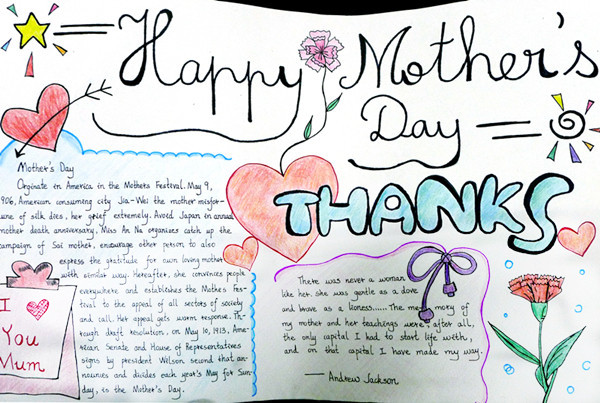 Happy Mother's
Day
THANKS
Mother's Day
Orginate in America in the Mothers Festival. May 9,
906, American consuming city Jia-Wei the mother misfor-
une of silk dies, her grief extremely. Avoid Japan in annual
mother death anniversary, Miss An Na organises catch up the
ampaign of Sai mother, encourage other person to also
express the gratitude for own loving mother
with similar way. Hereafter, she convinces people
everywhere and establishes the Mothers Fes-
tival to the appeal of all sectors of society
and call. Her appeal gets worm response. Th-
rough draft resolution, on May 10, 1913, Ame-
rican Senate and House of Representatives
signs by president Welson second that an-
nounies and divides each year's May for Sun-
day, is the Mother's Day.
I
You
Mum
There was never a woman
like her. she was gentle as a dove
and brave as a lioness...... The memory of
my mother and her teachings were, after all,
the only capital I had to start life with,
and on that capital I have made my way.
— Andrew Jackson